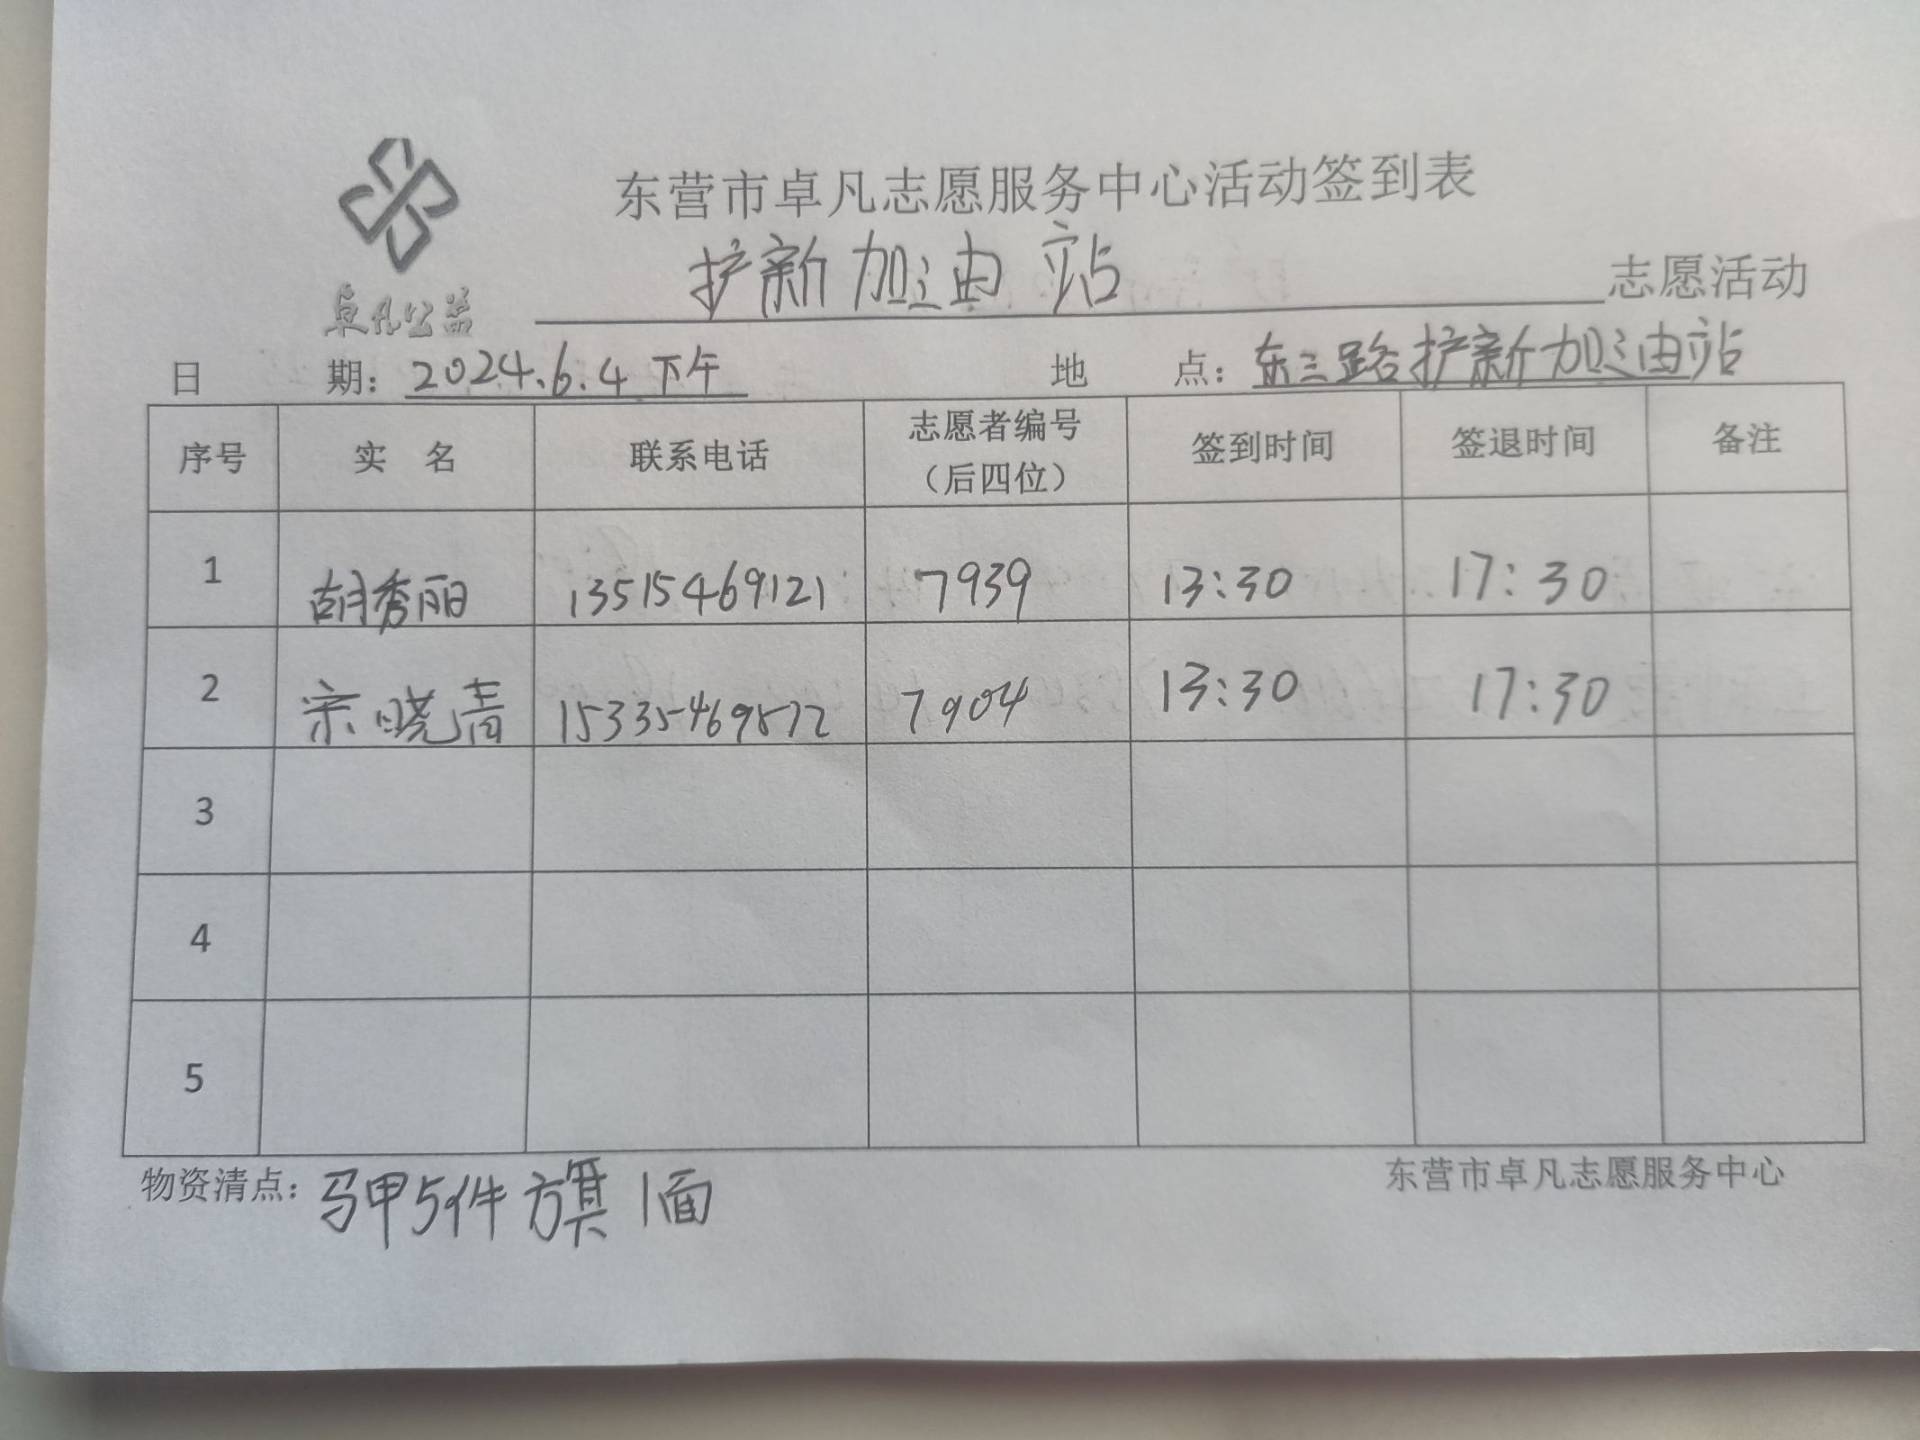 东营市卓凡志愿服务中心活动签到表
卓凡公益
护新加油站 志愿活动
日 期：2024.6.4下午 地 点：东三路护新加油站
序号 实 名 联系电话 志愿者编号（后四位） 签到时间 签退时间 备注
1 胡秀丽 13515469121 7939 13:30 17:30
2 宋晓青 15335469872 7904 13:30 17:30
3
4
5
物资清点：马甲5件 旗1面 东营市卓凡志愿服务中心